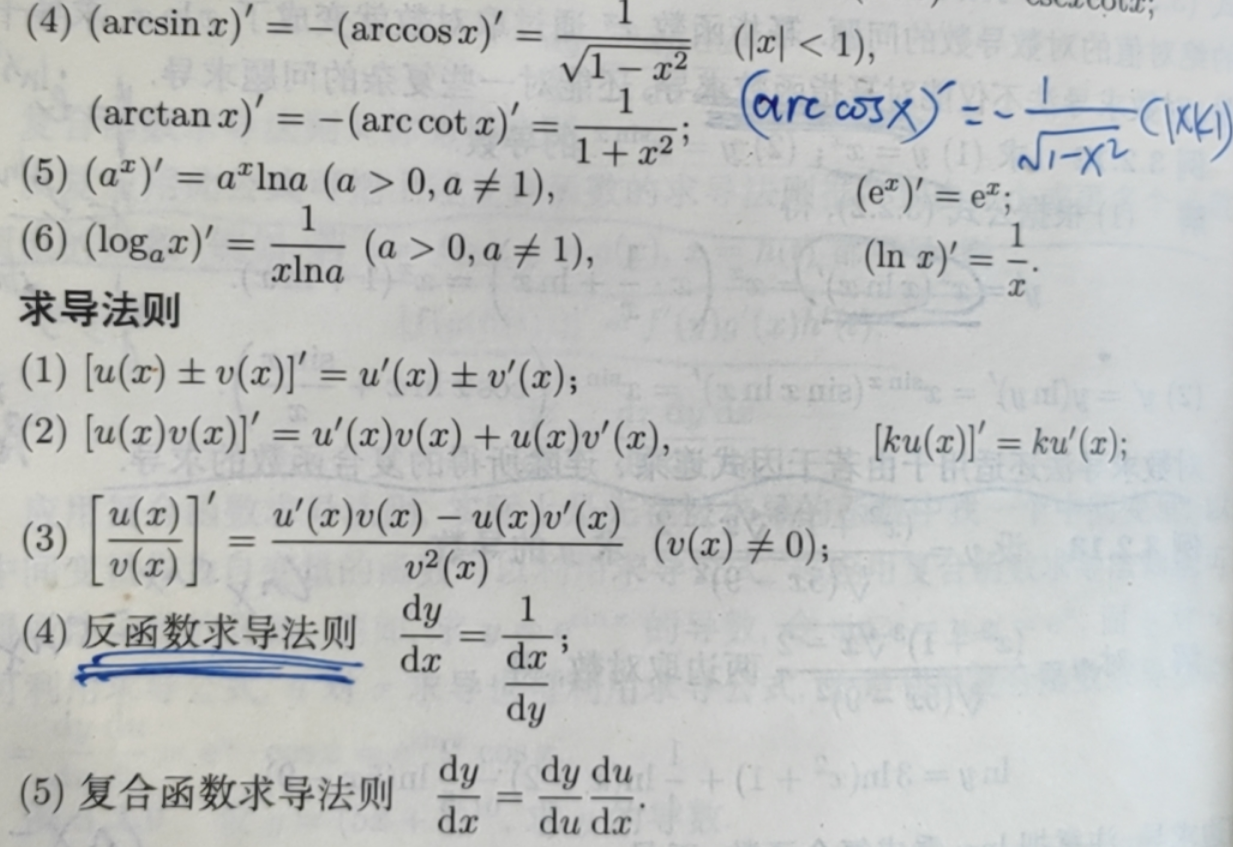 cscxcotx;
(4) (arcsin x)′ = −(arccos x)′ = 1/√(1 − x²) (|x| < 1),
(arctan x)′ = −(arc cot x)′ = 1/(1 + x²); (arc cosx)′ = - 1/√(1-x²) (|x|<1)
(5) (aˣ)′ = aˣlna (a > 0, a ≠ 1), (eˣ)′ = eˣ;
(6) (logₐx)′ = 1/(xlna) (a > 0, a ≠ 1), (ln x)′ = 1/x.
求导法则
(1) [u(x) ± v(x)]′ = u′(x) ± v′(x);
(2) [u(x)v(x)]′ = u′(x)v(x) + u(x)v′(x), [ku(x)]′ = ku′(x);
(3) [u(x)/v(x)]′ = (u′(x)v(x) − u(x)v′(x))/v²(x) (v(x) ≠ 0);
(4) 反函数求导法则 dy/dx = 1/(dx/dy);
(5) 复合函数求导法则 dy/dx = dy/du du/dx.